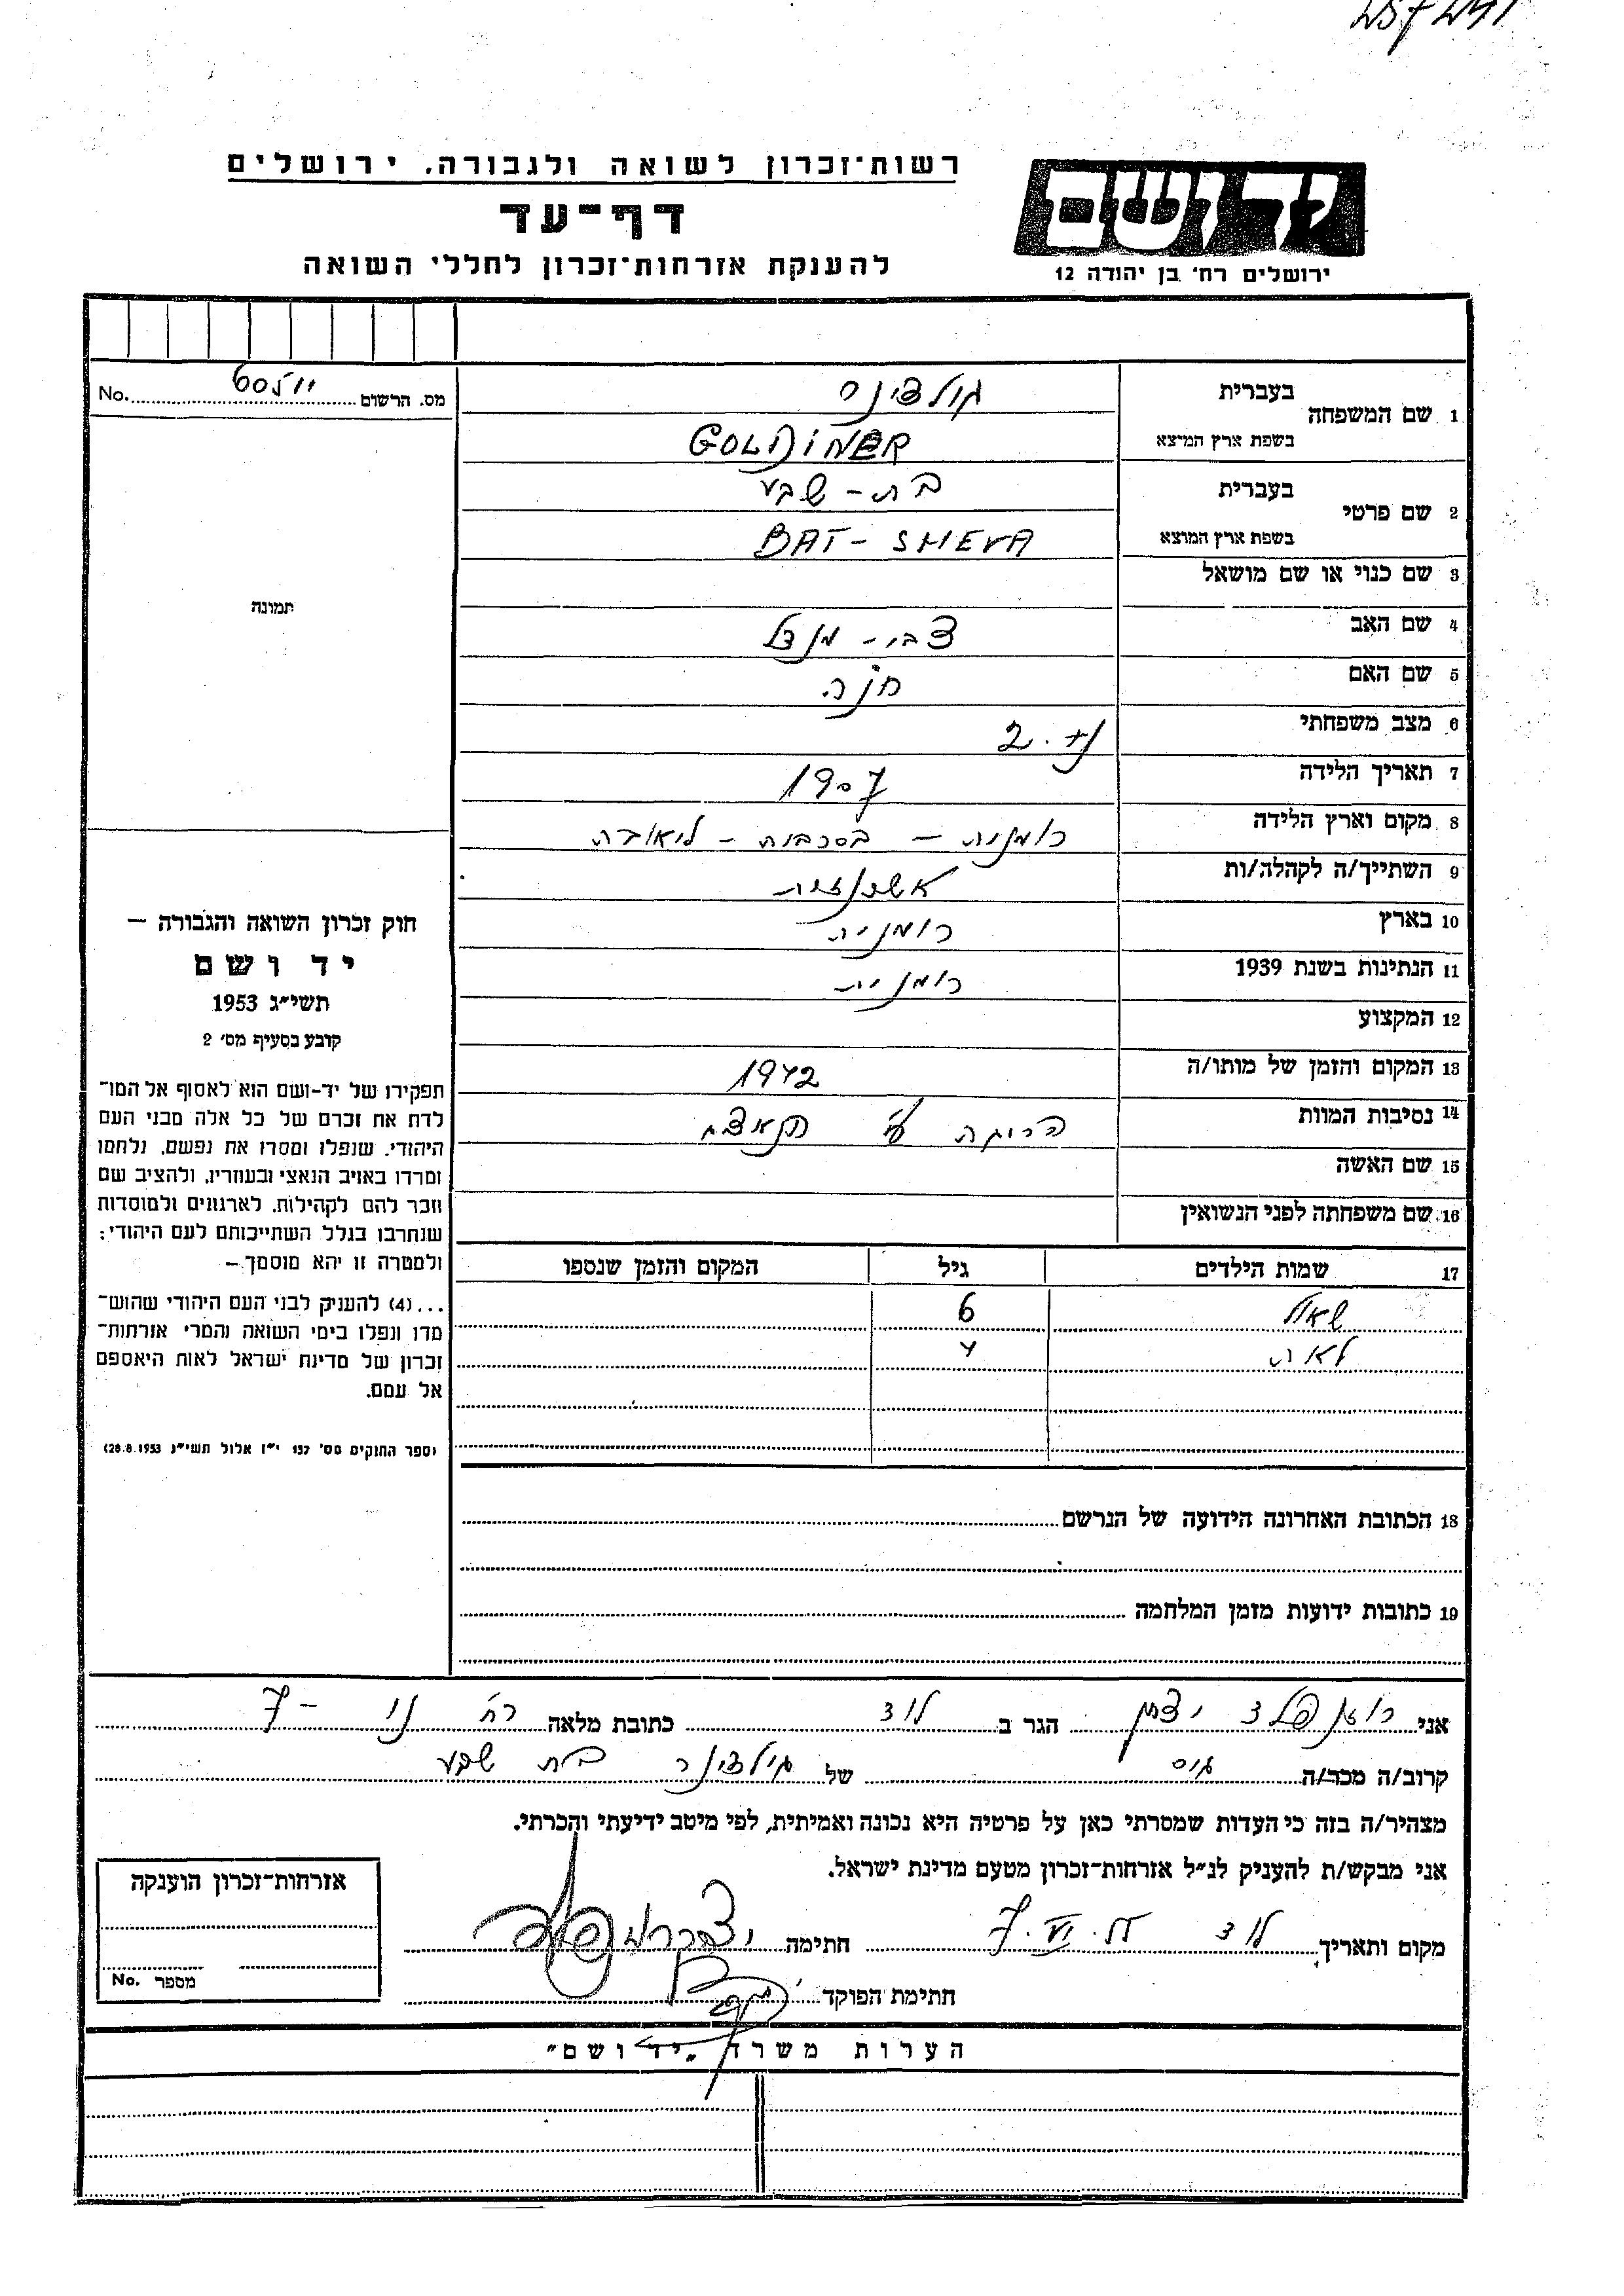 רשות־זכרון לשואה ולגבורה. ירושלים
יד ושם
דף־עד
להענקת אזרחות־זכרון לחללי השואה
ירושלים רח׳ בן יהודה 12
מס. הרשום No.
1 שם המשפחה
בעברית
בשפת ארץ המוצא GOLDINER
2 שם פרטי
בעברית בת-שבע
בשפת ארץ המוצא BAT-SHEVA
3 שם כנוי או שם מושאל
4 שם האב צבי-מנדל
5 שם האם חנה
6 מצב משפחתי נ+2
7 תאריך הלידה 1907
8 מקום וארץ הלידה רומניה - בסרביה - ליאובה
9 השתייך/ה לקהלה/ות אשכנזית
10 בארץ רומניה
11 הנתינות בשנת 1939 רומנית
12 המקצוע
13 המקום והזמן של מותו/ה 1942
14 נסיבות המוות הרוגה ע״י
15 שם האשה
16 שם משפחתה לפני הנשואין
17 שמות הילדים גיל המקום והזמן שנספו
שאול 6
לאה 4
תמונה
חוק זכרון השואה והגבורה —
יד ושם
תשי״ג 1953
קובע בסעיף מס׳ 2
תפקידו של יד-ושם הוא לאסוף אל המו־
לדת את זכרם של כל אלה מבני העם
היהודי. שנפלו ומסרו את נפשם. נלחמו
ומרדו באויב הנאצי ובעוזריו. ולהציב שם
וזכר להם לקהילות. לארגונים ולמוסדות
שנחרבו בגלל השתייכותם לעם היהודי:
ולמטרה זו יהא מוסמך.—
...(4) להעניק לבני העם היהודי שהוש־
מדו ונפלו בימי השואה והמרי אזרחות־
זכרון של מדינת ישראל לאות היאספם
אל עמם.
(ספר החוקים מס׳ 132 י״ז אלול תשי״ג 28.8.1953)
18 הכתובת האחרונה הידועה של הנרשם
19 כתובות ידועות מזמן המלחמה
אני רוזנפלד יצחק הגר ב לוד כתובת מלאה
קרוב/ה מכר/ה גיס של גולדינר בת שבע
מצהיר/ה בזה כי העדות שמסרתי כאן על פרטיה היא נכונה ואמיתית, לפי מיטב ידיעתי והכרתי.
אני מבקש/ת להעניק לנ״ל אזרחות־זכרון מטעם מדינת ישראל.
מקום ותאריך לוד חתימה
חתימת הפוקד
אזרחות־זכרון הוענקה
מספר No.
הערות משרד „יד ושם"